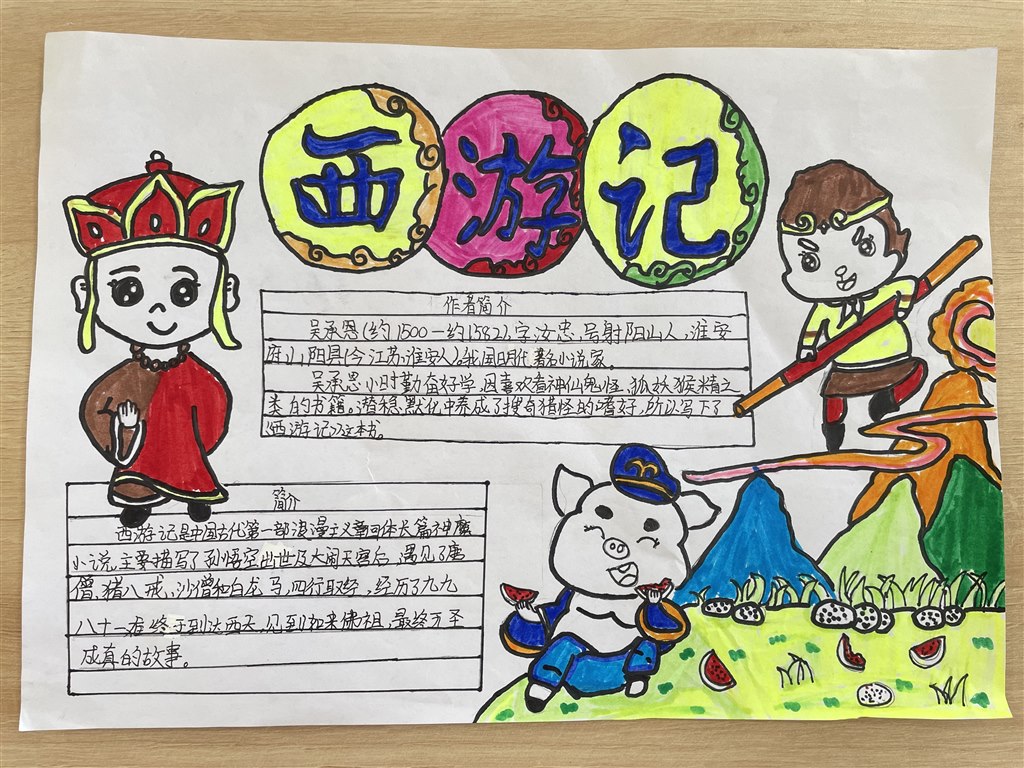 西游记
作者简介
吴承恩(约1500-约1582),字汝忠,号射阳山人,淮安
府山阳县(今江苏淮安人)。我国明代著名小说家。
吴承恩小时勤奋好学,因喜欢看神仙鬼怪、狐妖猴精之
类的书籍。潜移默化中养成了搜奇猎怪的嗜好,所以写下了
《西游记》这本书。
简介
西游记是中国古代第一部浪漫主义章回体长篇神魔
小说,主要描写了孙悟空出世及大闹天宫后,遇见了唐
僧、猪八戒、沙僧和白龙马,四行取经,经历了九九
八十一难终于到达西天,见到如来佛祖,最终万圣
成真的故事。